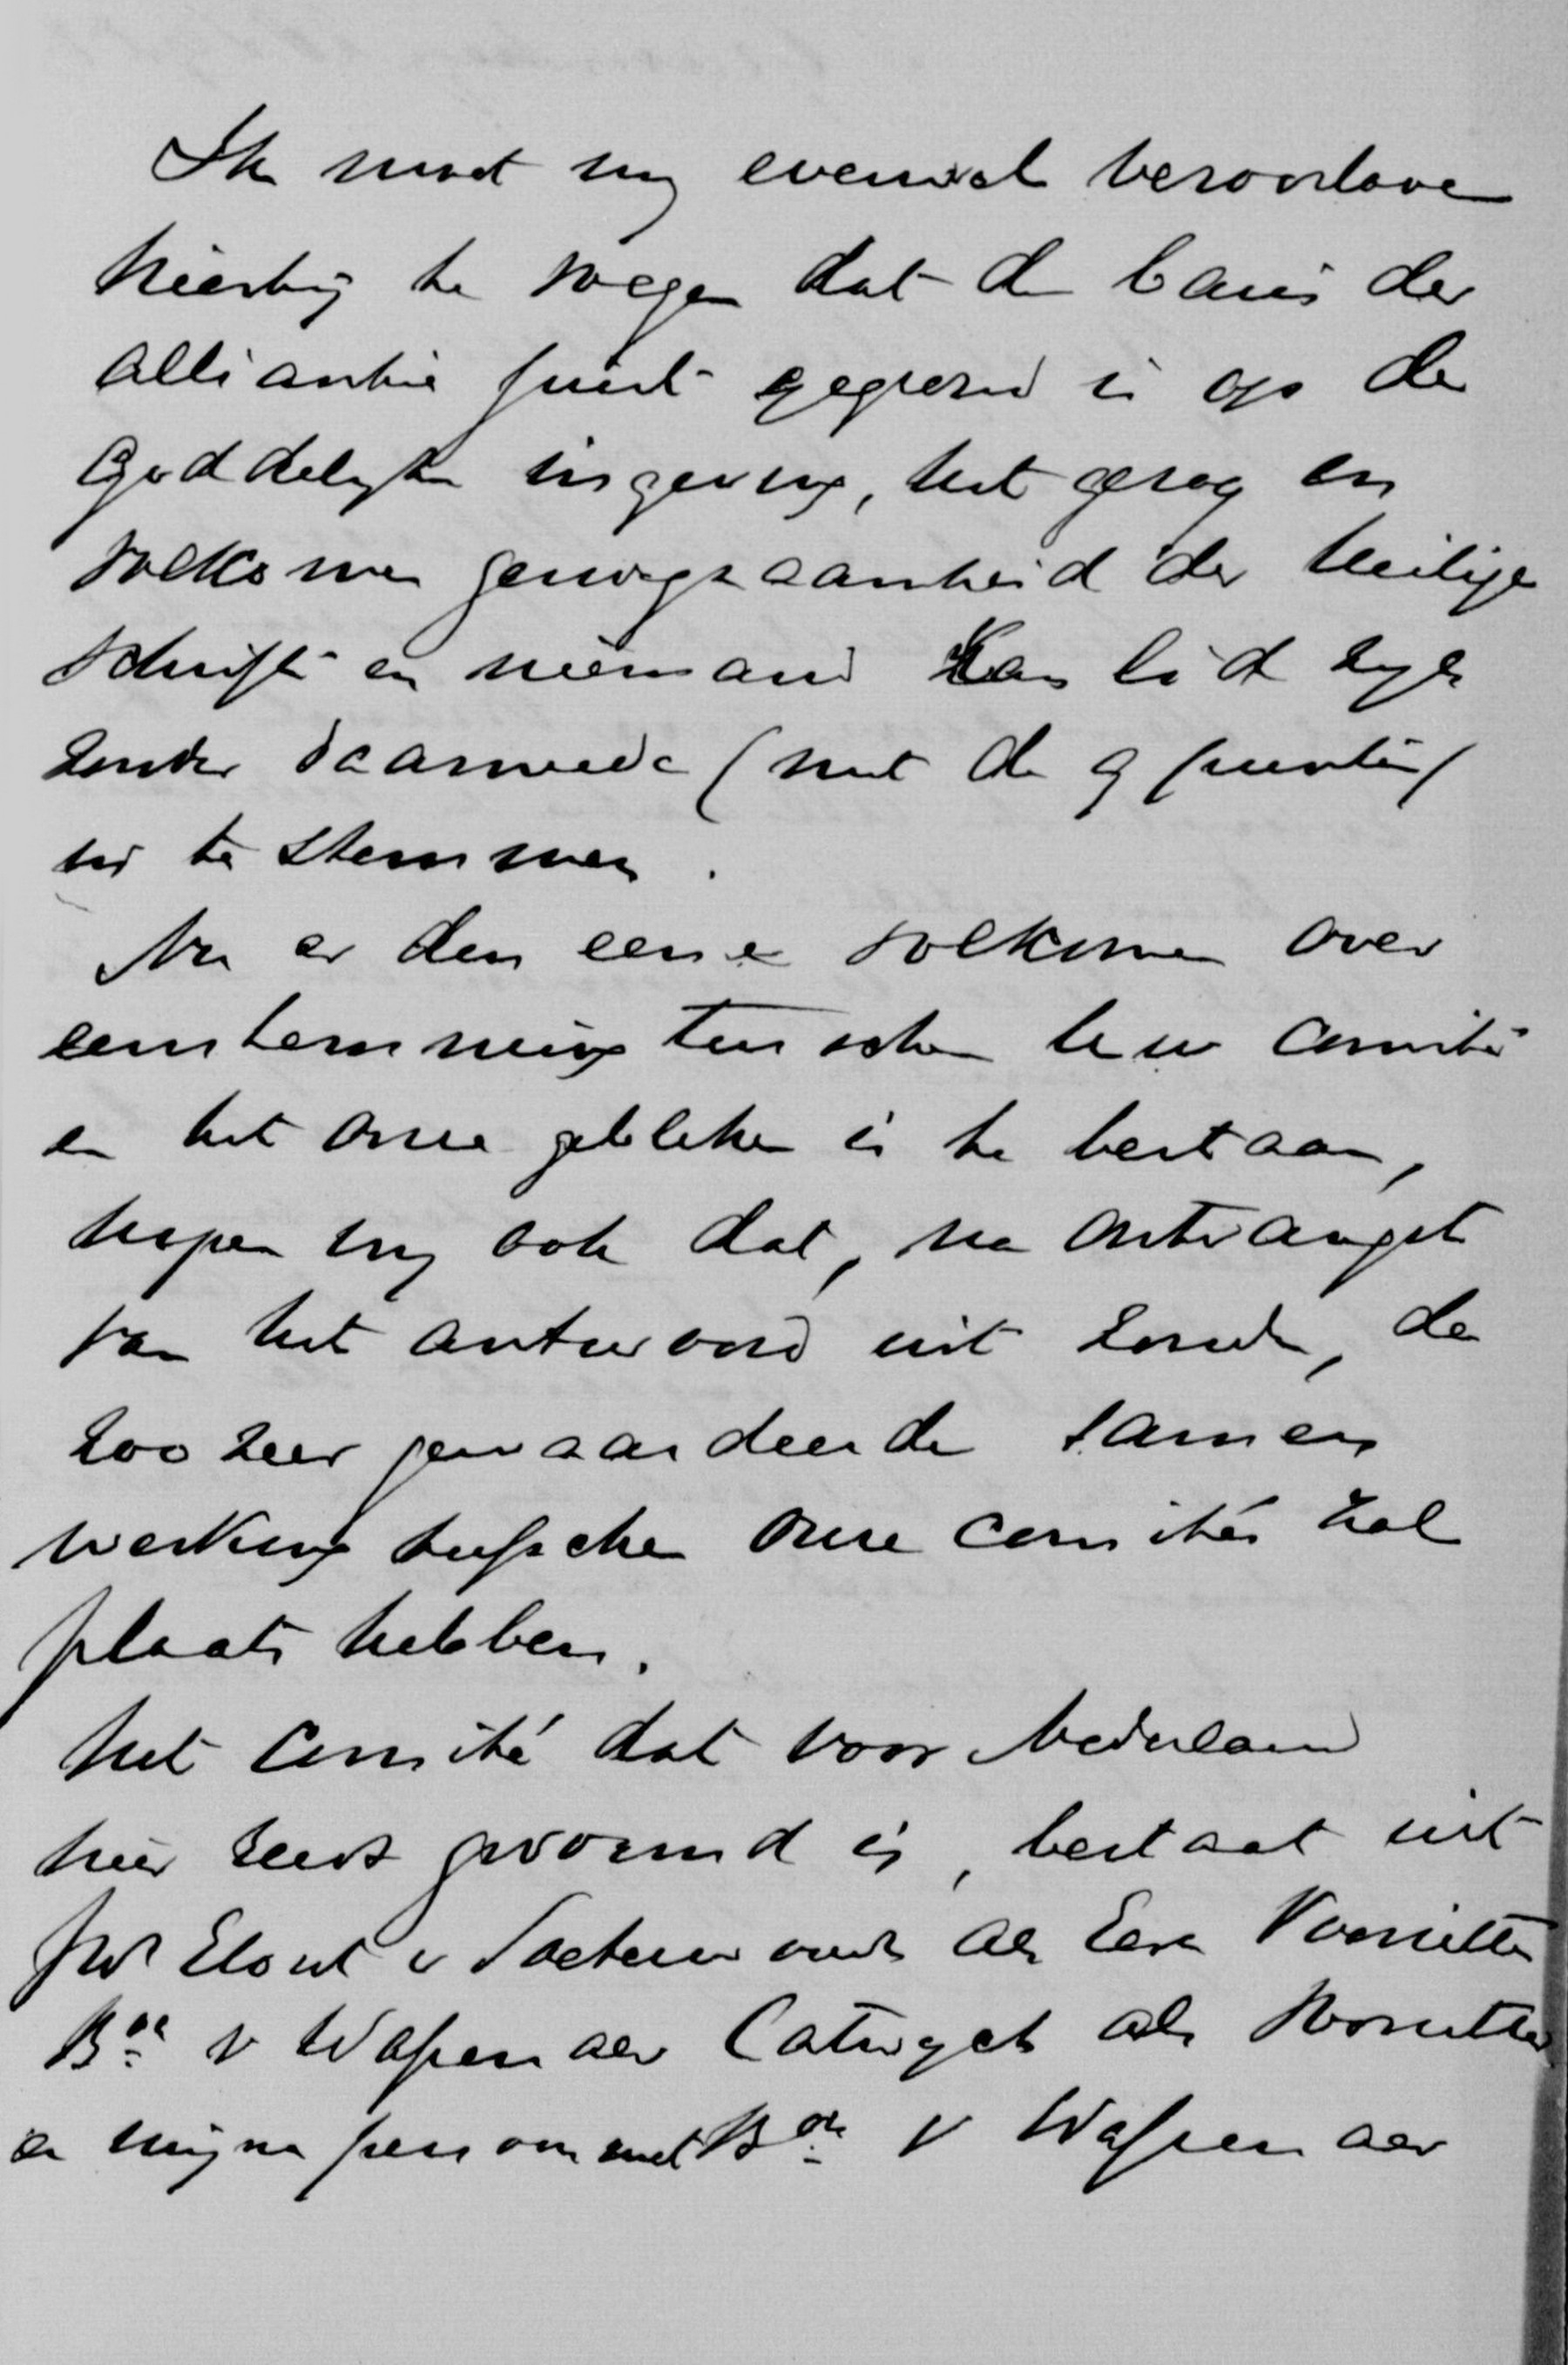 Ik moet my evenwel veroorloven
hierby te voegen dat de basis der
alliantie juist gegrond is op de
Goddelyke ingeving, het gezag en
volkomen genoegzaamheid der Heilige
Schrift en niemand kan lid zyn
zonder daarmede (met de 9 punten)
in te stemmen.
Nu er dan eene volkomen over
eenstemming tusschen Uw Comité
en het onze gebleken is te bestaan,
hopen wy ook dat, na ontvangst
van het antwoord uit Londen, de
zoo zeer gewaardeerde samen
werking tusschen onze comités zal
plaats hebben.
Het Comité dat voor Nederland
hier reeds gevormd is, bestaat uit
Jhr Elout v Soeterwoude als Eere Voorzitter
Bon v Wassenaer Catwyck als Voorzitter
en mijne persoon met Bon v Wassenaer